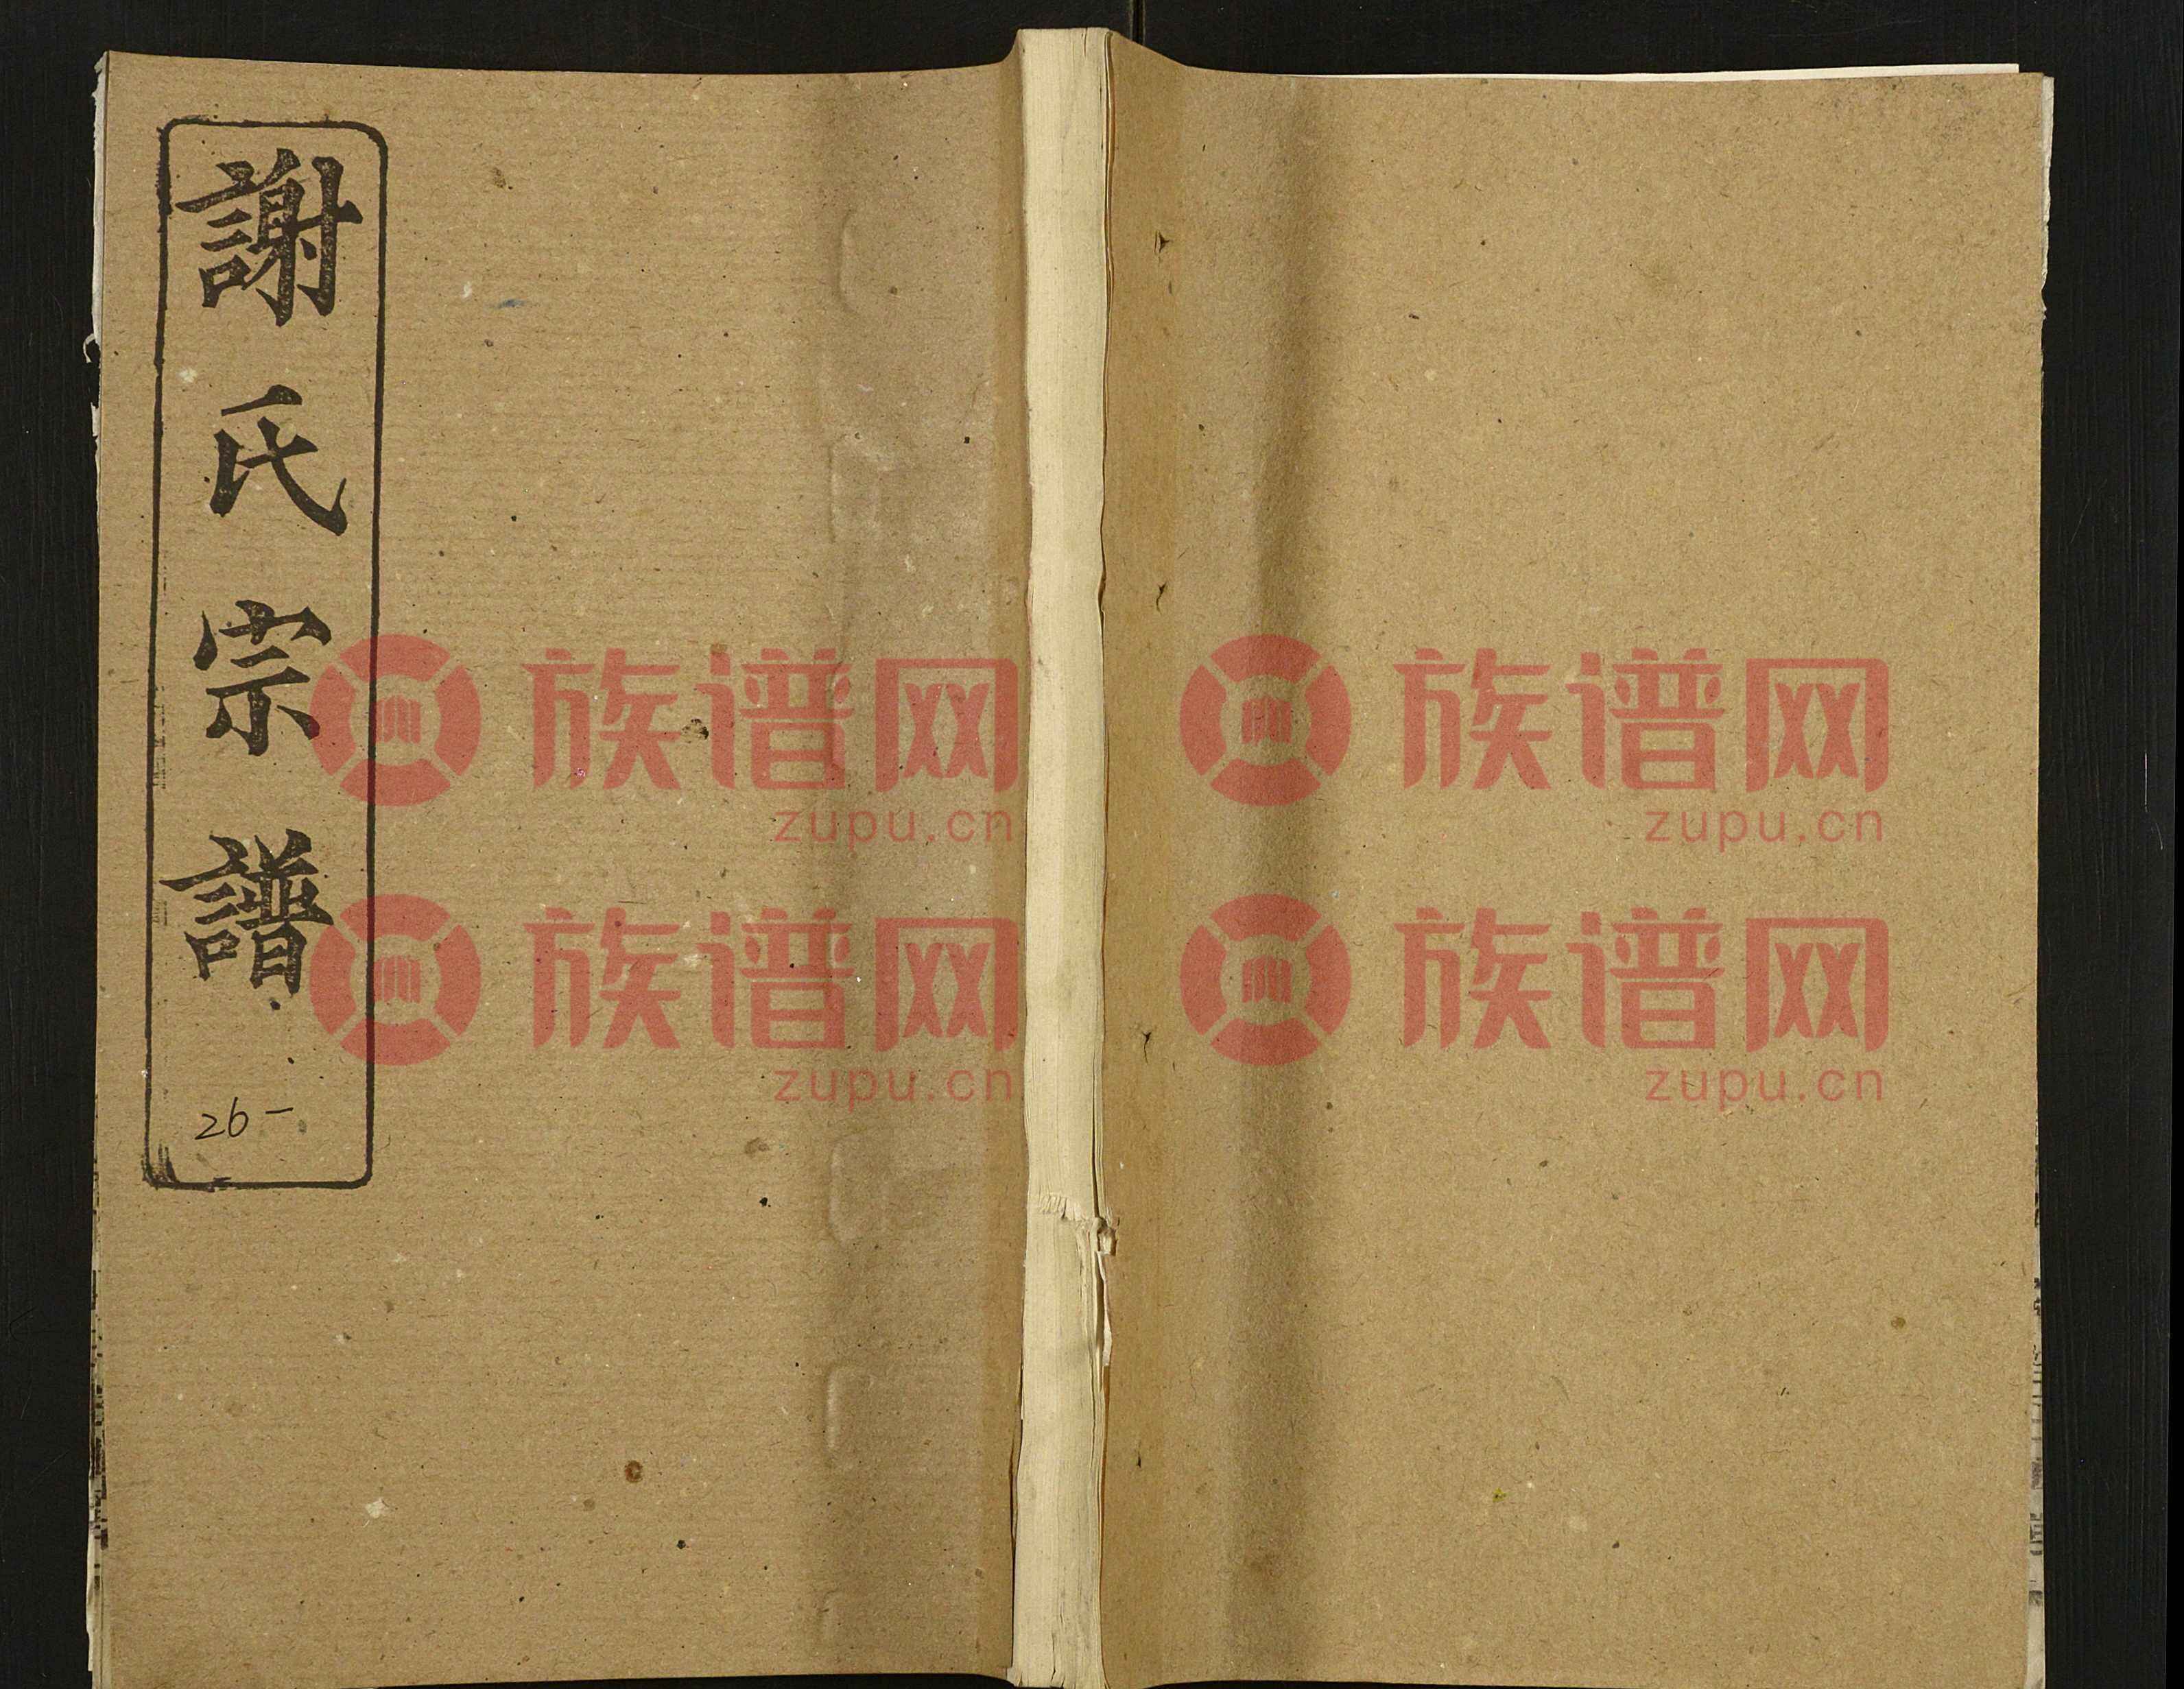 謝氏宗譜
26-
族谱网
zupu.cn
族谱网
zupu.cn
族谱网
zupu.cn
族谱网
zupu.cn